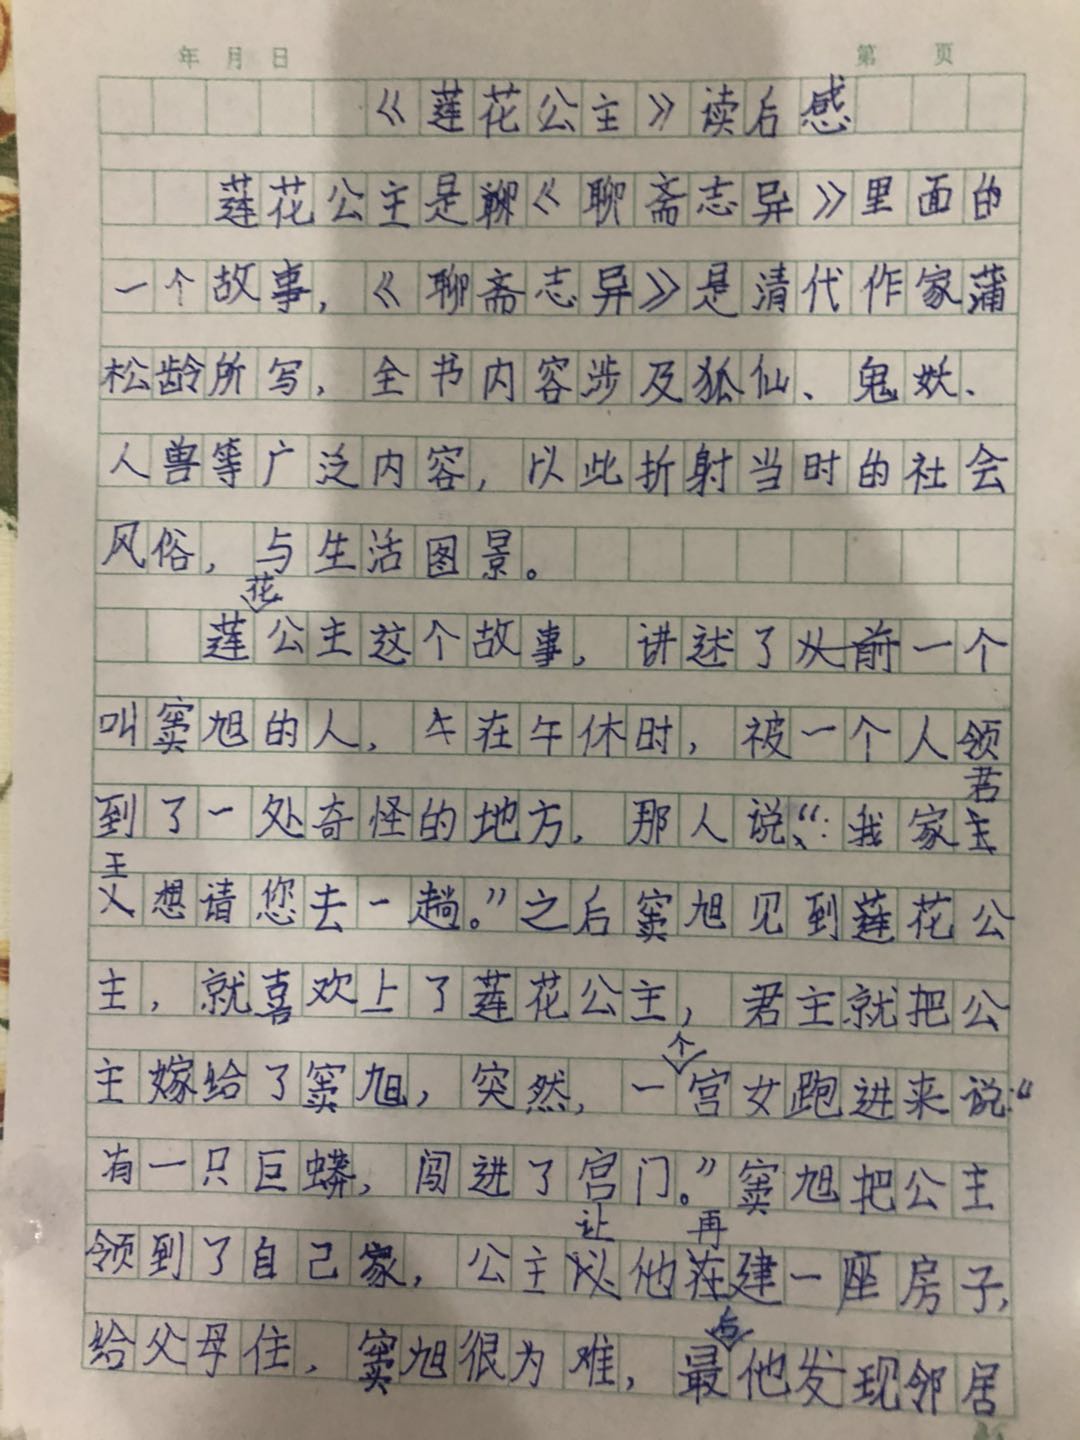 年 月 日 第 页
《莲花公主》读后感
莲花公主是聊《聊斋志异》里面的
一个故事，《聊斋志异》是清代作家蒲
松龄所写，全书内容涉及狐仙、鬼妖、
人兽等广泛内容，以此折射当时的社会
风俗，与生活图景。
莲花公主这个故事，讲述了从前一个
叫窦旭的人，午在午休时，被一个人领
到了一处奇怪的地方，那人说：“我家君
王想请您去一趟。”之后窦旭见到莲花公
主，就喜欢上了莲花公主，君主就把公
主嫁给了窦旭，突然，一个宫女跑进来说：“
有一只巨蟒，闯进了宫门。”窦旭把公主
领到了自己家，公主让他再建一座房子，
给父母住，窦旭很为难，最后他发现邻居